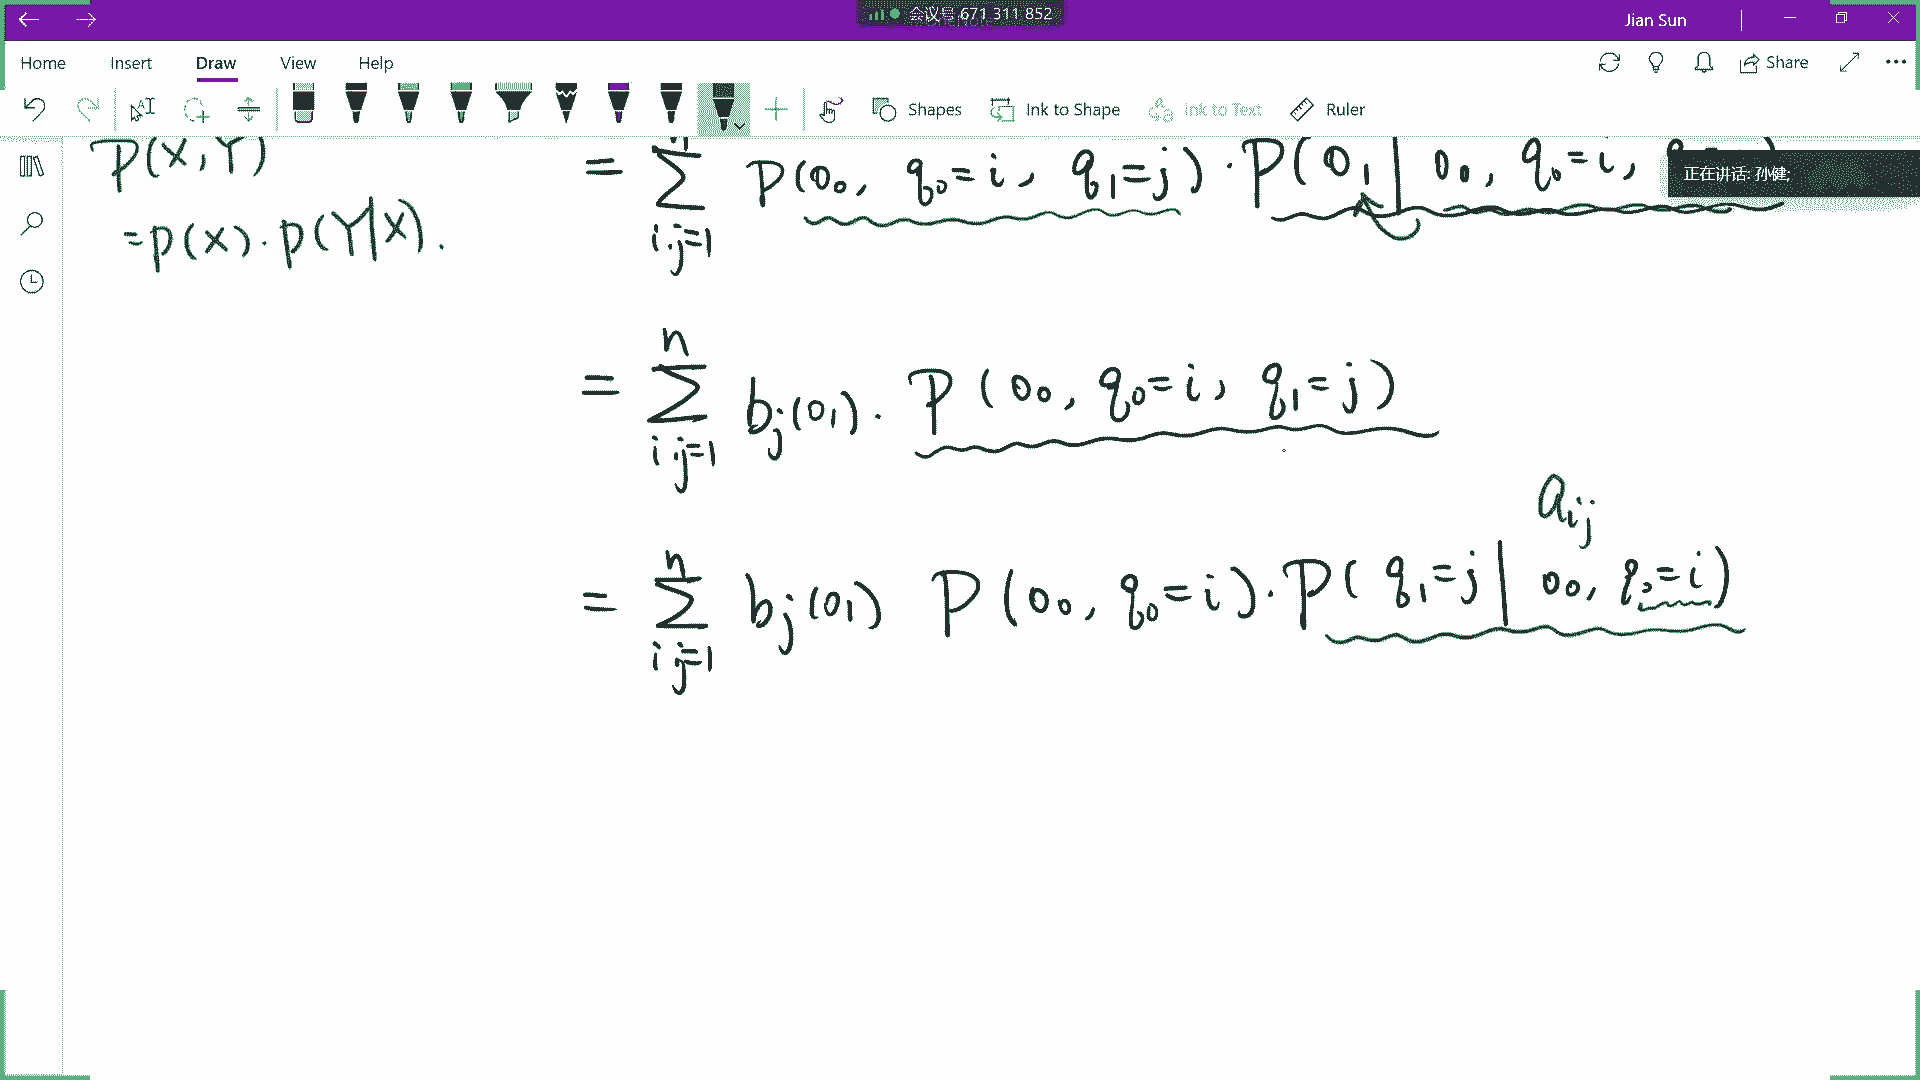 会议号 671 311 852
Jian Sun
Home Insert Draw View Help Share
Shapes Ink to Shape Ink to Text Ruler
正在讲话: 孙健;
P(X,Y)
=P(X)·P(Y|X).
= ∑ i.j=1 P(o₀, q₀=i, q₁=j)·P(o₁|o₀, q₀=i,
= ∑ n i.j=1 bj(o₁)· P(o₀, q₀=i, q₁=j)
aij
= ∑ n i j=1 bj(o₁) P(o₀, q₀=i)·P(q₁=j|o₀, q₀=i)